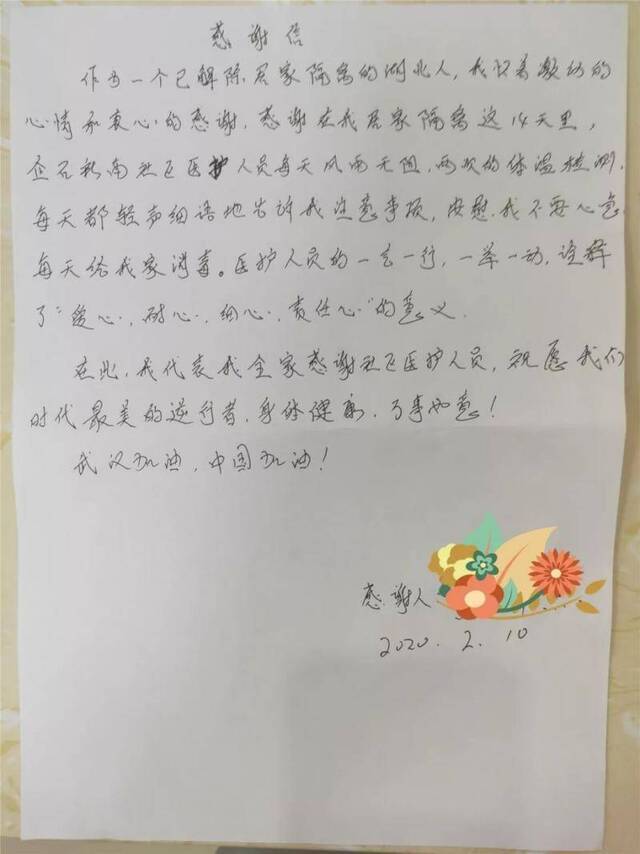 感谢信
作为一个已解除居家隔离的湖北人,我怀着激动的
心情和衷心的感谢,感谢在我居家隔离这14天里,
企石新南社区医护人员每天风雨无阻,两次的体温检测,
每天都轻声细语地告诉我注意事项,安慰我不要心急
每天给我家消毒。医护人员的一言一行,一举一动,诠释
了“爱心、耐心、细心、责任心”的意义.
在此,我代表我全家感谢社区医护人员,祝愿我们
时代最美的逆行者,身体健康,万事如意!
武汉加油,中国加油!
感谢人
2020.2.10